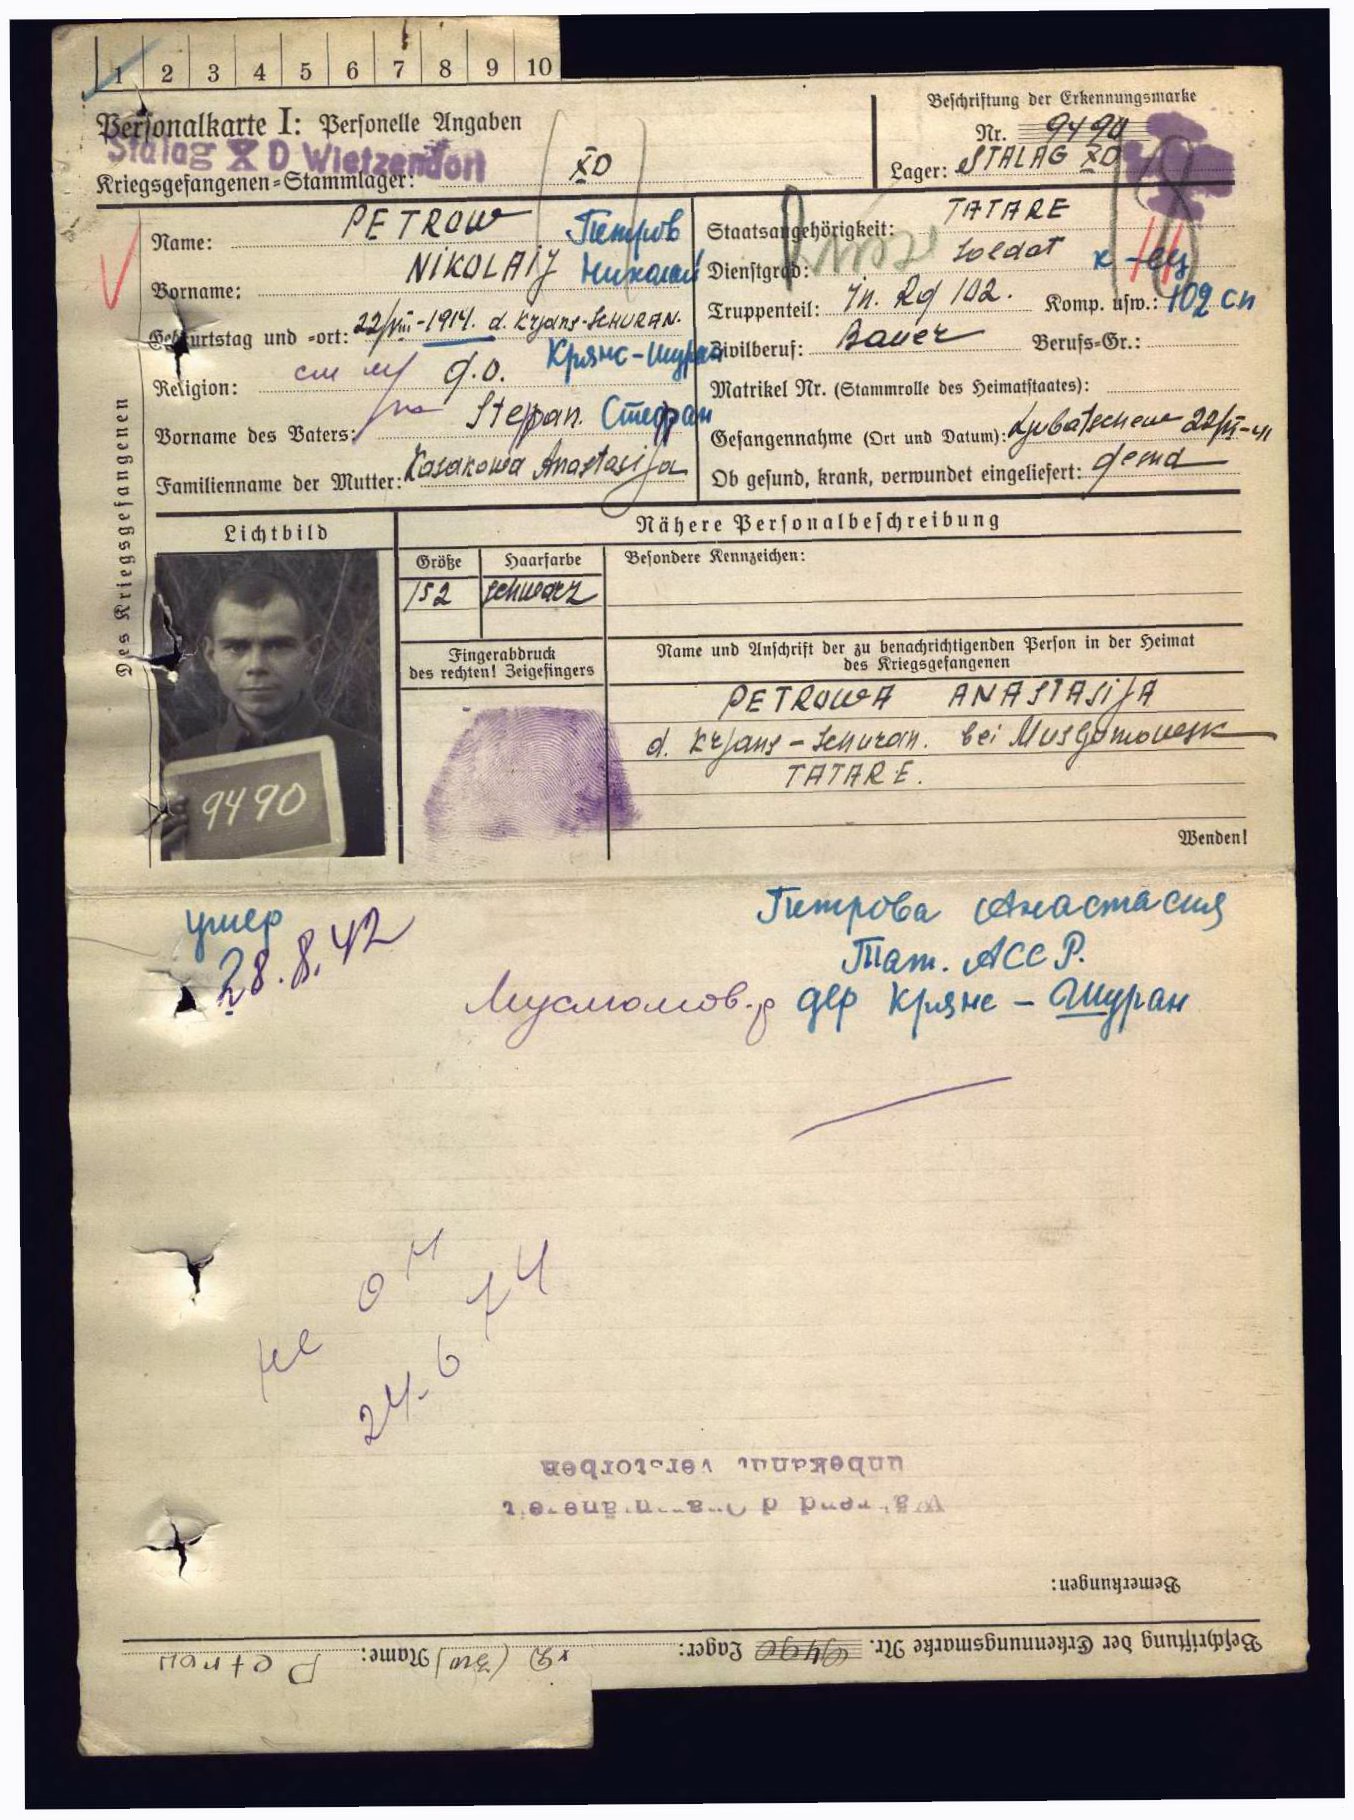 1 2 3 4 5 6 7 8 9 10
Personalkarte I: Personelle Angaben
Stalag X D Wietzendorf
Kriegsgefangenen-Stammlager: XD
Beschriftung der Erkennungsmarke
Nr. 9490
Lager: STALAG XD
Des Kriegsgefangenen
Name: PETROW Петров
Vorname: NIKOLAIJ Николай
Geburtstag und -ort: 22/VIII-1914. d. Krjans-SCHURAN.
Крянс-Шуран
Religion: g.o.
Vorname des Vaters: Steppan. Стефан
Familienname der Mutter: Kasakowa Anastasija
Staatsangehörigkeit: TATARE
Dienstgrad: Soldat к-ец
Truppenteil: In. Rg 102. Komp. usw.: 102 сп
Zivilberuf: Bauer Berufs-Gr.:
Matrikel Nr. (Stammrolle des Heimatstaates):
Gefangennahme (Ort und Datum): Ljubatschew 22/VI-41
Ob gesund, krank, verwundet eingeliefert:
Lichtbild
9490
Nähere Personalbeschreibung
Größe Haarfarbe Besondere Kennzeichen:
152 schwarz
Fingerabdruck
des rechten! Zeigefingers
Name und Anschrift der zu benachrichtigenden Person in der Heimat
des Kriegsgefangenen
PETROWA ANASTASIJA
d. Krjans-Schuran. bei Musljumowsk
TATARE.
Wenden!
умер
28.8.42
Петрова Анастасия
Тат. АССР.
Муслюмов. р дер Крянс-Шуран
не он
24.6 74
unbekannt verstorben
Bemerkungen:
Beschriftung der Erkennungsmarke Nr. 9490 Lager: Name: Petrow